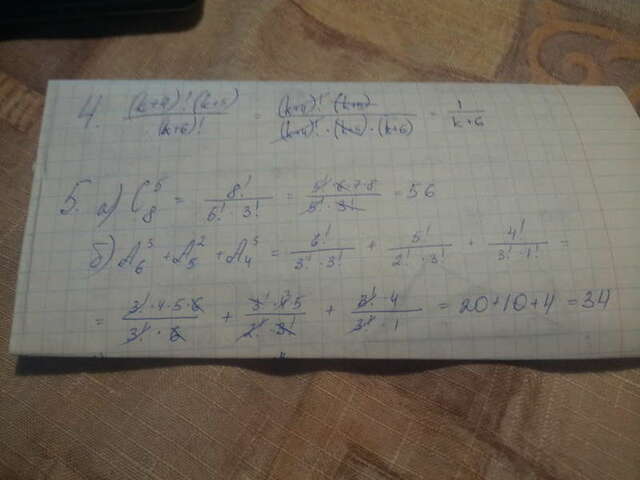 4. (k+4)!·(k+5) / (k+6)! = (k+4)!·(k+5) / (k+4)!·(k+5)·(k+6) = 1 / k+6
5. а) C₈⁵ = 8! / 5!·3! = 5!·6·7·8 / 5!·3! = 56
б) A₆³ + A₅² + A₄³ = 6! / 3!·3! + 5! / 2!·3! + 4! / 3!·1! =
= 3!·4·5·6 / 3!·6 + 3!·4·5 / 2!·3! + 3!·4 / 3!·1 = 20+10+4 = 34